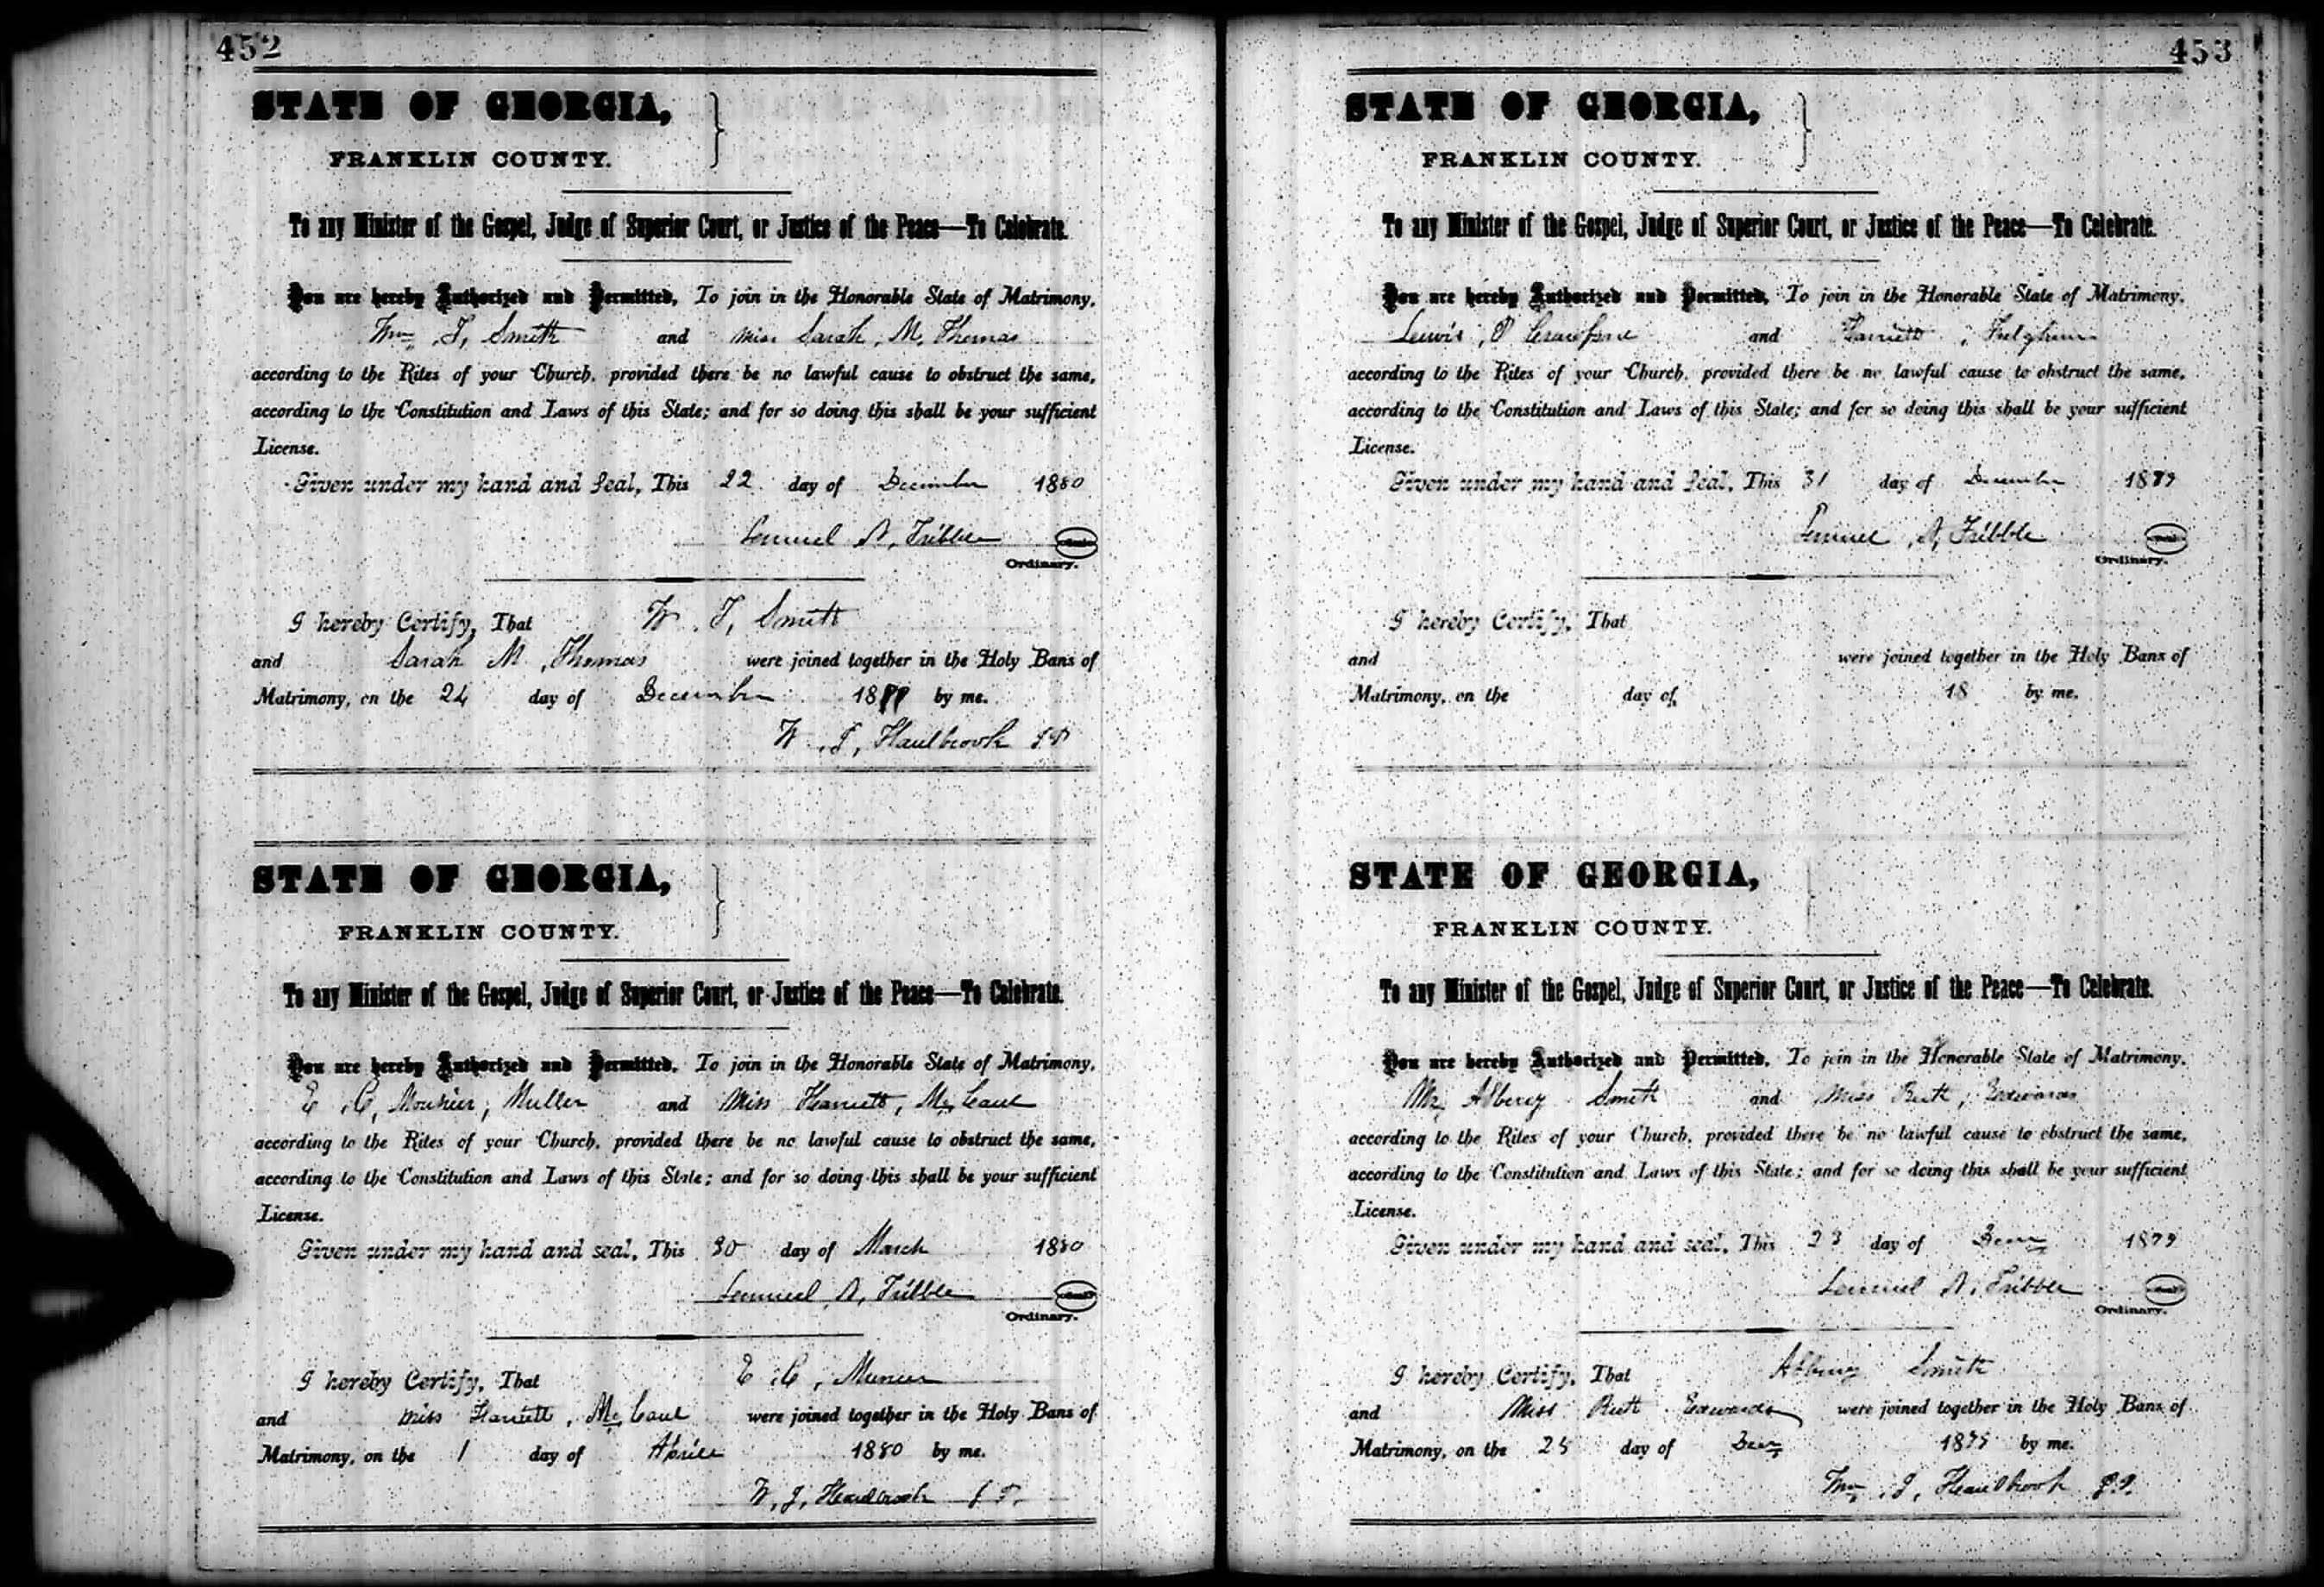 452
STATE OF GEORGIA,
FRANKLIN COUNTY.
To any Minister of the Gospel, Judge of Superior Court, or Justice of the Peace—To Celebrate.
You are hereby Authorized and Permitted, To join in the Honorable State of Matrimony,
Wm. T, Smith and Miss Sarah, M, Thomas
according to the Rites of your Church, provided there be no lawful cause to obstruct the same,
according to the Constitution and Laws of this State; and for so doing this shall be your sufficient
License.
Given under my hand and Seal, This 22 day of December 1880
Lemuel N, Tribble
Ordinary.
I hereby Certify, That W. T, Smith
and Sarah M, Thomas were joined together in the Holy Bans of
Matrimony, on the 24 day of December 18 by me.
W. J, Haulbrook J P
STATE OF GEORGIA,
FRANKLIN COUNTY.
To any Minister of the Gospel, Judge of Superior Court, or Justice of the Peace—To Celebrate.
You are hereby Authorized and Permitted, To join in the Honorable State of Matrimony,
E, C, Muller and Miss Harriett, McCaul
according to the Rites of your Church, provided there be no lawful cause to obstruct the same,
according to the Constitution and Laws of this State; and for so doing this shall be your sufficient
License.
Given under my hand and seal, This 30 day of March 1880
Lemuel, N, Tribble
Ordinary.
I hereby Certify, That E, C,
and Miss Harriett, McCaul were joined together in the Holy Bans of
Matrimony, on the 1 day of Aprile 1880 by me.
W, J, Haulbrook J P.
453
STATE OF GEORGIA,
FRANKLIN COUNTY.
To any Minister of the Gospel, Judge of Superior Court, or Justice of the Peace—To Celebrate.
You are hereby Authorized and Permitted, To join in the Honorable State of Matrimony,
Lewis, Crawford and Harriett, Fulghum
according to the Rites of your Church, provided there be no lawful cause to obstruct the same,
according to the Constitution and Laws of this State; and for so doing this shall be your sufficient
License.
Given under my hand and Seal, This 31 day of December 1879
Lemuel, N, Tribble
Ordinary.
I hereby Certify, That
and were joined together in the Holy Bans of
Matrimony, on the day of 18 by me.
STATE OF GEORGIA,
FRANKLIN COUNTY.
To any Minister of the Gospel, Judge of Superior Court, or Justice of the Peace—To Celebrate.
You are hereby Authorized and Permitted, To join in the Honorable State of Matrimony,
Mr, Smith and Miss Ruth, Edwards
according to the Rites of your Church, provided there be no lawful cause to obstruct the same,
according to the Constitution and Laws of this State; and for so doing this shall be your sufficient
License.
Given under my hand and seal, This 23 day of 1879
Lemuel N. Tribble
Ordinary.
I hereby Certify, That Smith
and Miss Ruth Edwards were joined together in the Holy Bans of
Matrimony, on the 25 day of 18 by me.
Wm, J, Haulbrook J.P.